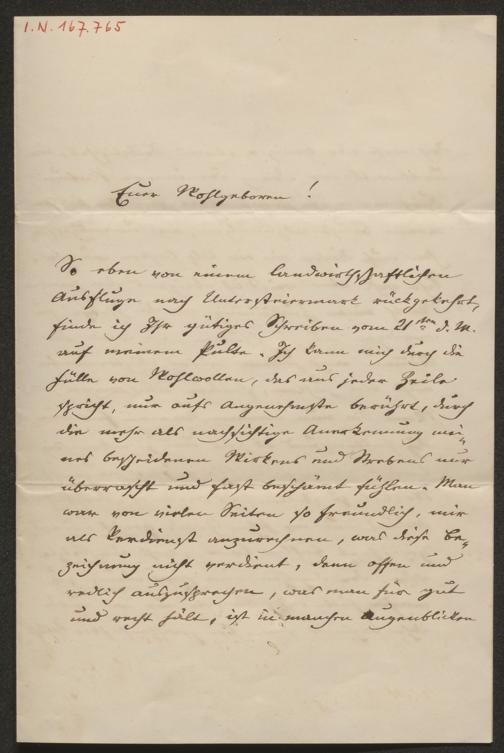 I.N. 167.765
Euer Wohlgeboren!
So eben von einem landwirthschaftlichen
Ausfluge nach Untersteiermark rückgekehrt,
finde ich Ihr gütiges Schreiben vom 21ten d. M.
auf meinem Pulte. Ich kann mich durch die
Fülle von Wohlwollen, das aus jeder Zeile
spricht, nur aufs Angenehmste berührt, durch
die mehr als nachsichtige Anerkennung mei-
nes bescheidenen Wirkens und Strebens nur
überrascht und fast beschämt fühlen. Man
war von vielen Seiten so freundlich, mir
als Verdienst anzurechnen, was diese Be-
zeichnung nicht verdient, denn offen und
redlich auszusprechen, was man für gut
und recht hält, ist in manchen Augenblicken